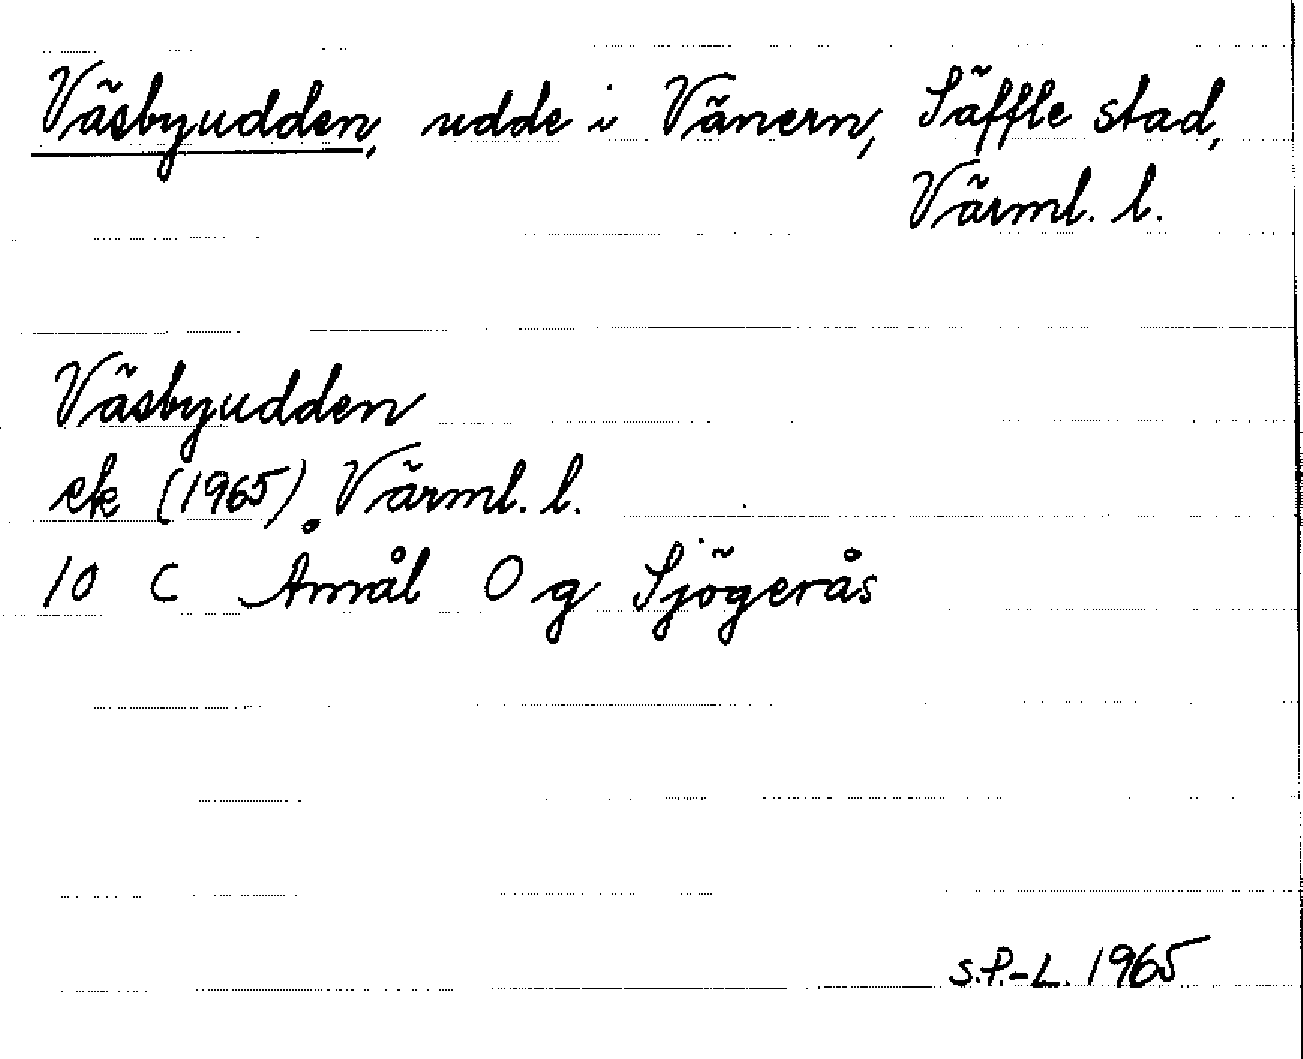 Väsbyudden, udde i Vänern, Säffle stad,
Värml. l.
Väsbyudden
ek (1965) Värml. l.
10 C Åmål O g Sjögerås
S.P.-L. 1965